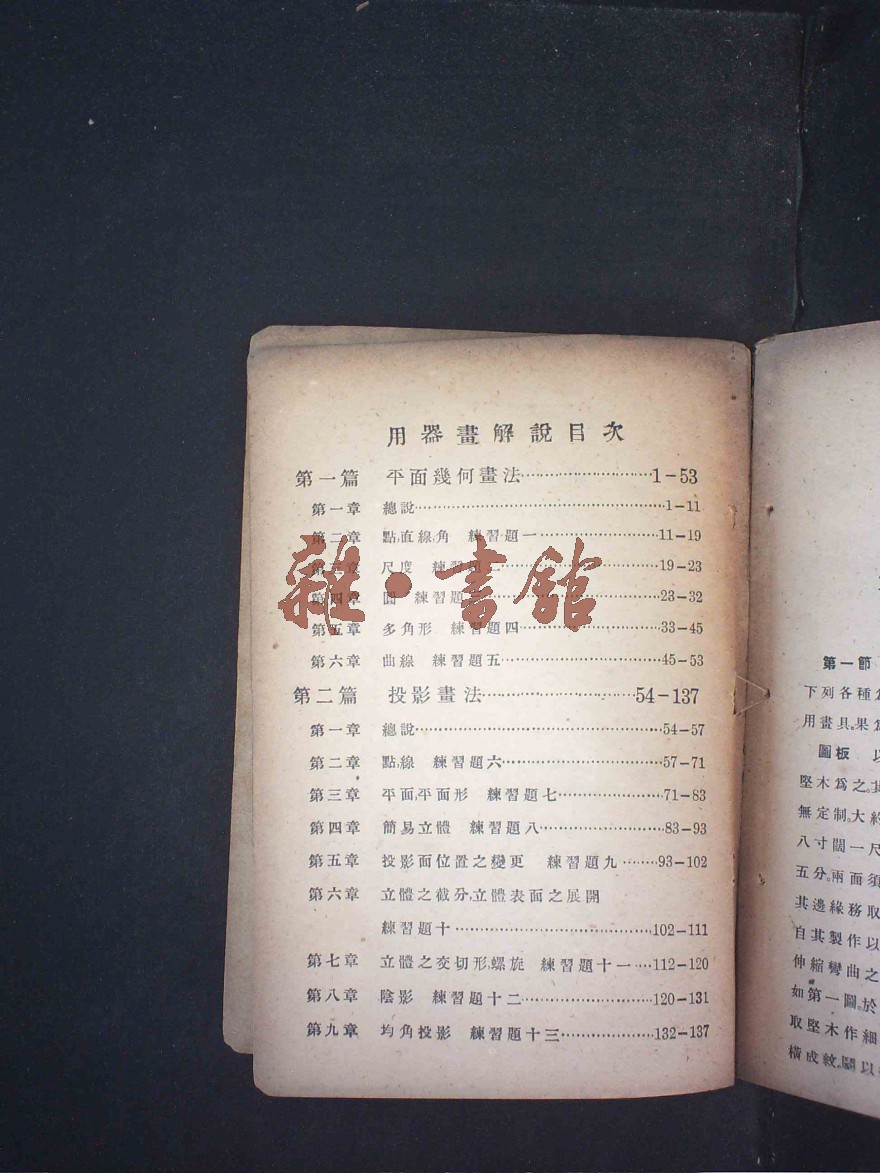 用器畫解說目次
第一篇 平面幾何畫法……………………1-53
第一章 總說……………………1-11
第二章 點,直線,角 練習題一……………………11-19
第三章 尺度 練習題二……………………19-23
第四章 圓 練習題……………………23-32
第五章 多角形 練習題四……………………33-45
第六章 曲線 練習題五……………………45-53
第二篇 投影畫法……………………54-137
第一章 總說……………………54-57
第二章 點,線 練習題六……………………57-71
第三章 平面,平面形 練習題七……………………71-83
第四章 簡易立體 練習題八……………………83-93
第五章 投影面位置之變更 練習題九……93-102
第六章 立體之截分,立體表面之展開
練習題十……………………102-111
第七章 立體之交切形,螺旋 練習題十一……112-120
第八章 陰影 練習題十二……………………120-131
第九章 均角投影 練習題十三……………………132-137
雜·書館
第一節
下列各種
用畫具。果
圖板 以
堅木爲之。其
無定制。大約
八寸闊一尺
五分。兩面須
其邊緣務取
自其製作以
伸縮彎曲之
如第一圖。於
取堅木作細
橫成紋。關以